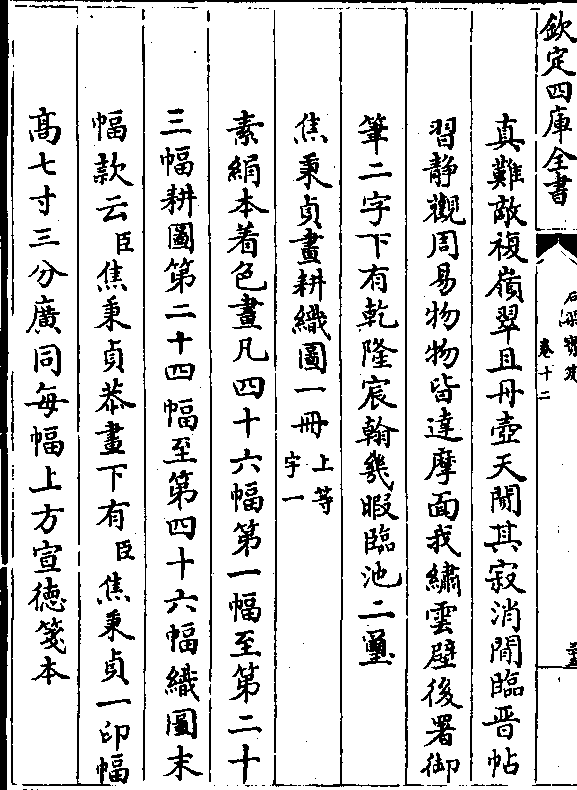 欽定四庫全書
卷十二
真難敵複嶺翠且丹壺天閒其寂消閒臨晉帖
習静觀周易物物皆達摩面我繡雲壁後署御
筆二字下有乾隆宸翰幾暇臨池二璽
焦秉貞畫耕織圖一冊上等字一
素絹本着色畫凡四十六幅第一幅至第二十
三幅耕圖第二十四幅至第四十六幅織圖末
幅款云臣焦秉貞恭畫下有臣焦秉貞一印幅
高七寸三分廣同每幅上方宣徳箋本